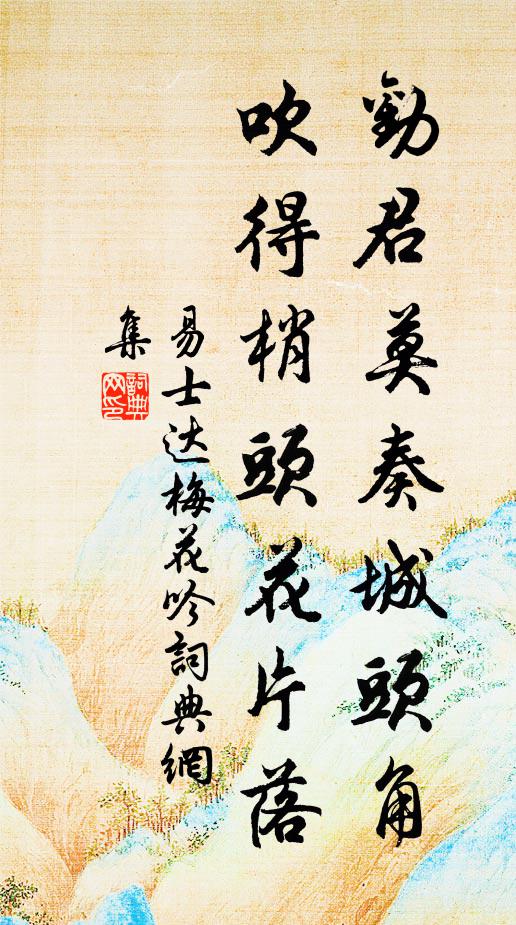 勸君莫奏城頭角
吹得梢頭花片落
易士达梅花吟詞典網
集
詞典
网印